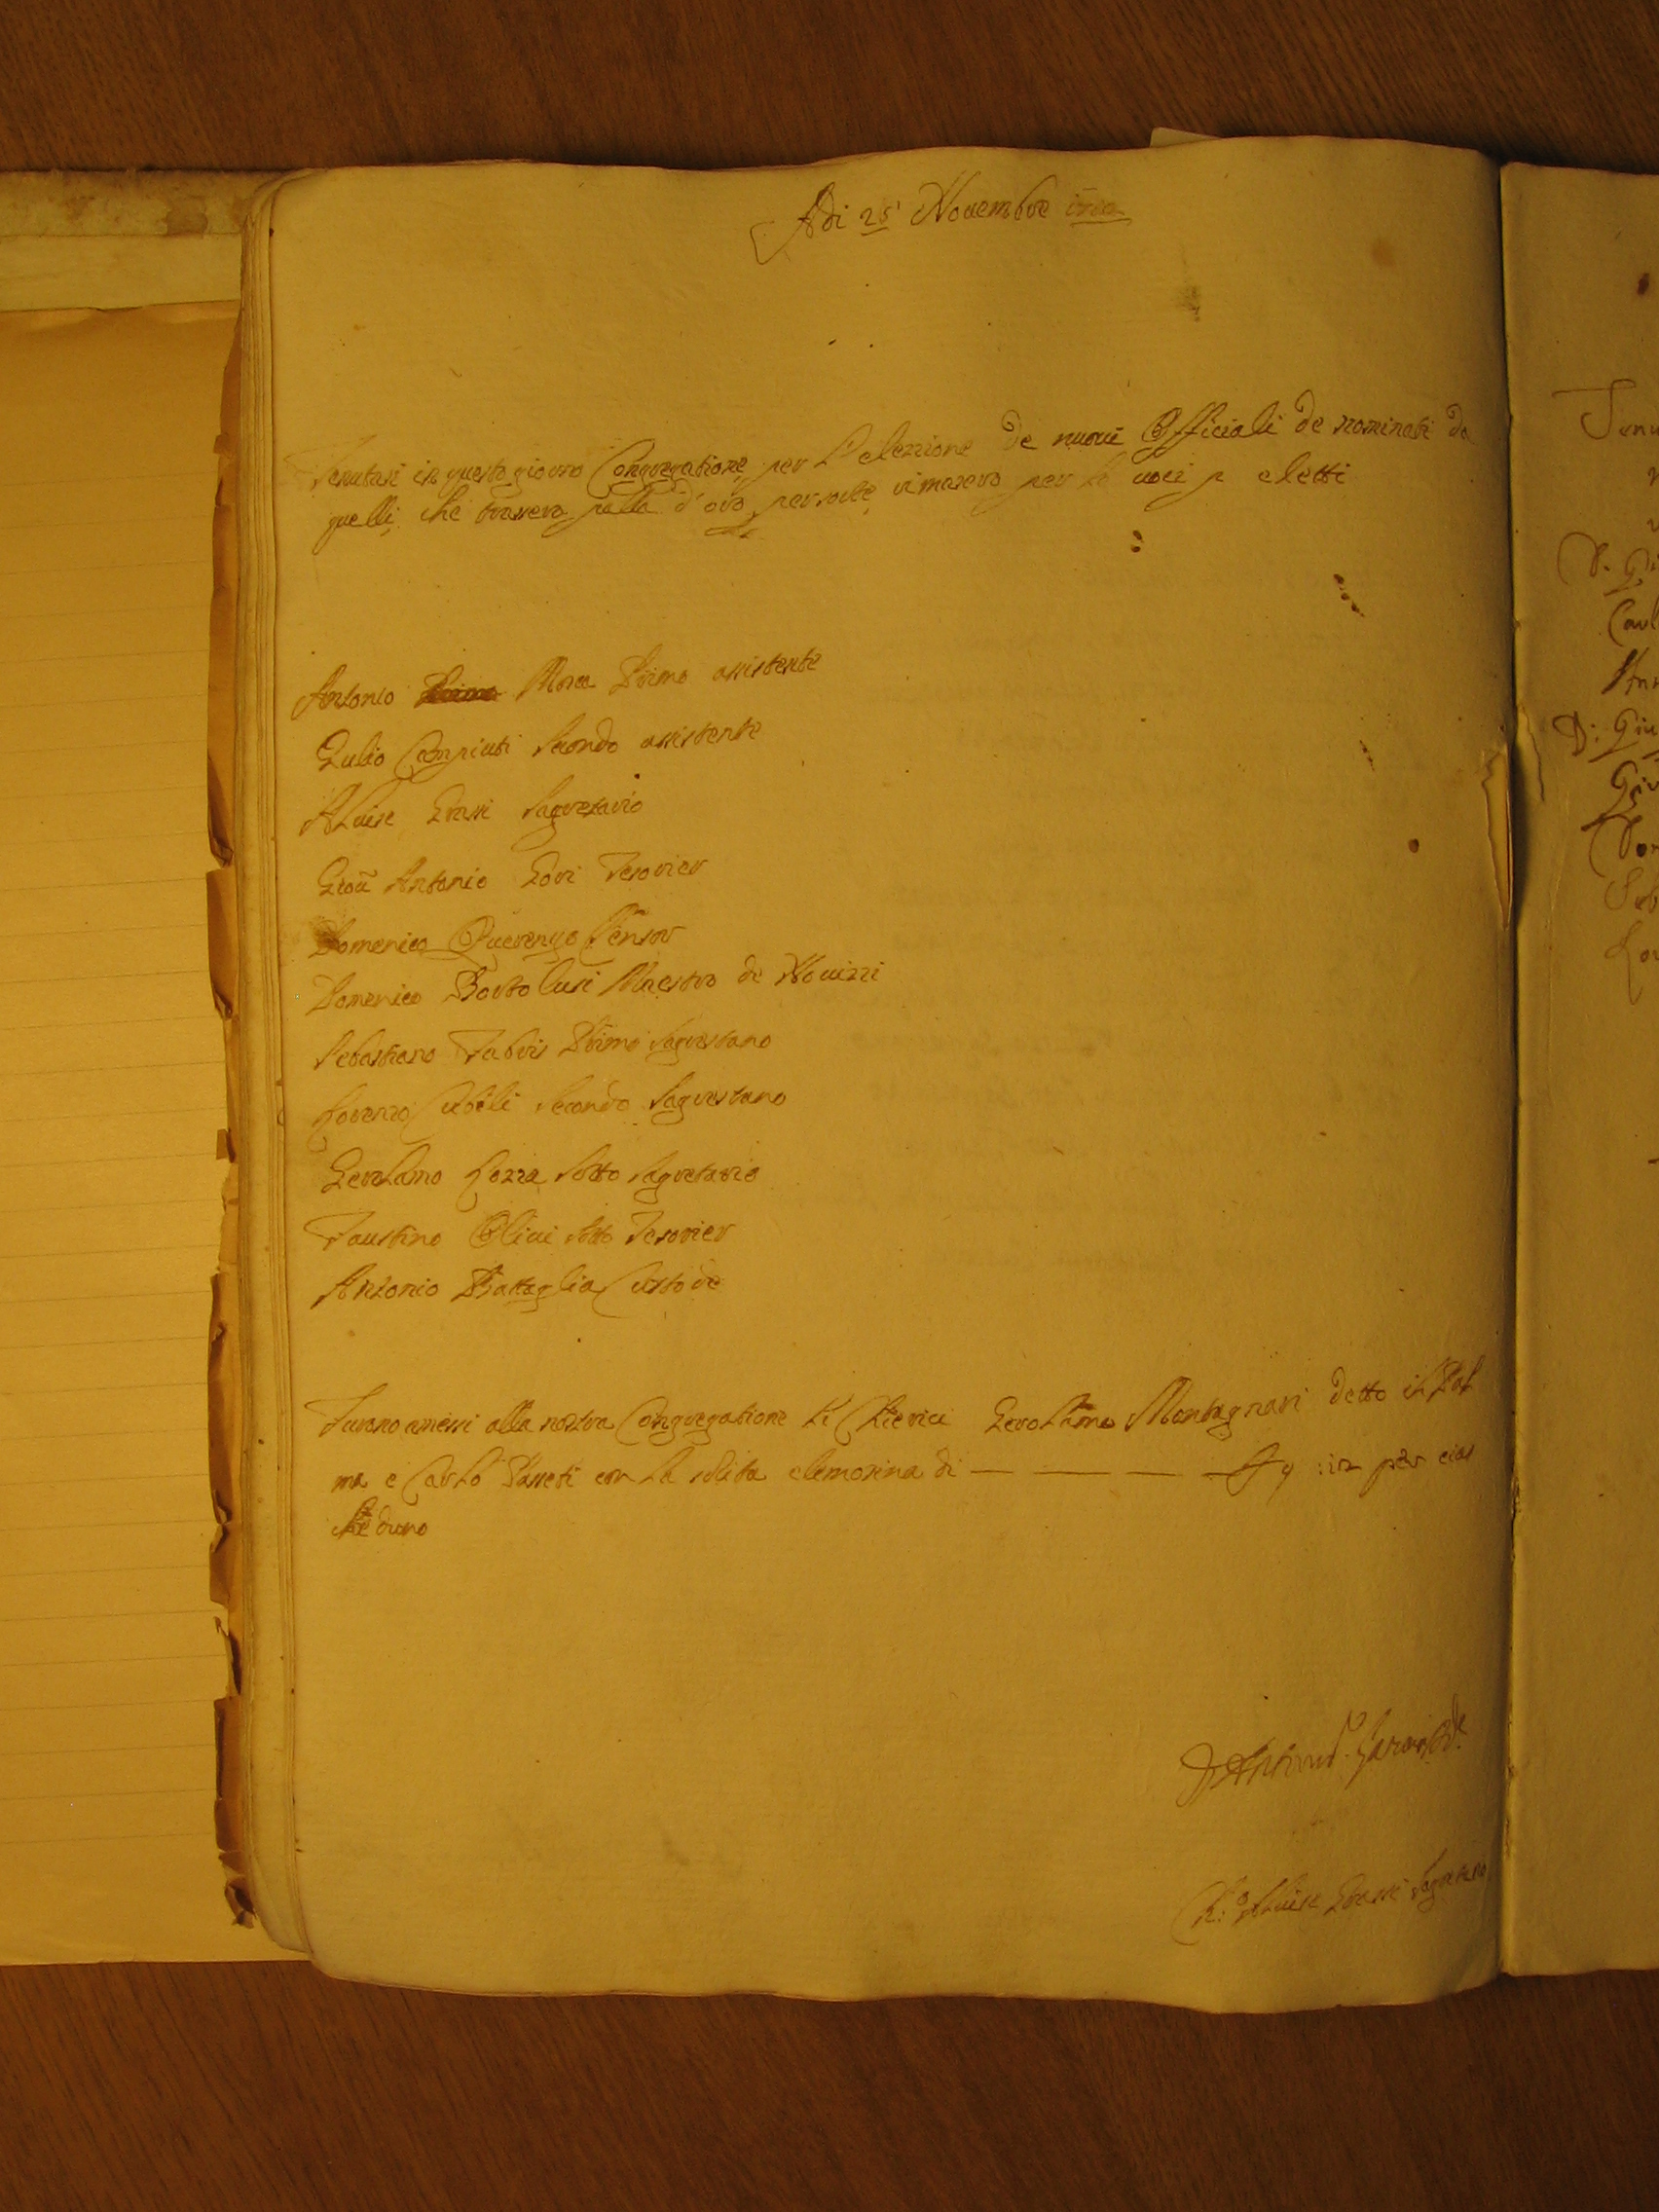 Adi 25 Nouembre
Tenutasi in questo giorno Congregatione per L'elezzione de nuoui Officiali de nominati da
quelli che trassero palla d'oro per sorte rimasero per le uoci p eletti
Antonio Primo Mora Primo assistente
Secondo assistente
Aluise Grassi Sagretario
Gioũ Antonio Gori Tesorier
Domenico Querengo Censor
Domenico Bortolusi Maestro de Nouizzi
Sebastiano Fabris Primo Sagrestano
Lorenzo Cibeli Secondo Sagrestano
Gerolamo Lozza Sotto Sagretario
Faustino Oliui Sotto Tesorier
Antonio Battaglia Custode
Furono amessi alla nostra Congregatione Li Chierici Gerolamo Montagnari detto il Pal
ma e Carlo con la solita elemosina di — — — — per cias
cheduno
Aluise Grassi Sagretario